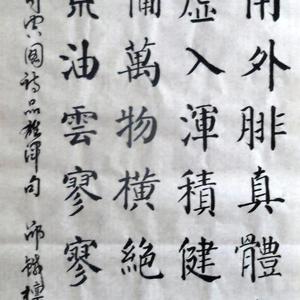 用外腓真體
虛入渾積健
備萬物橫絕
荒油雲寥寥
司空圖詩品雄渾句 邱